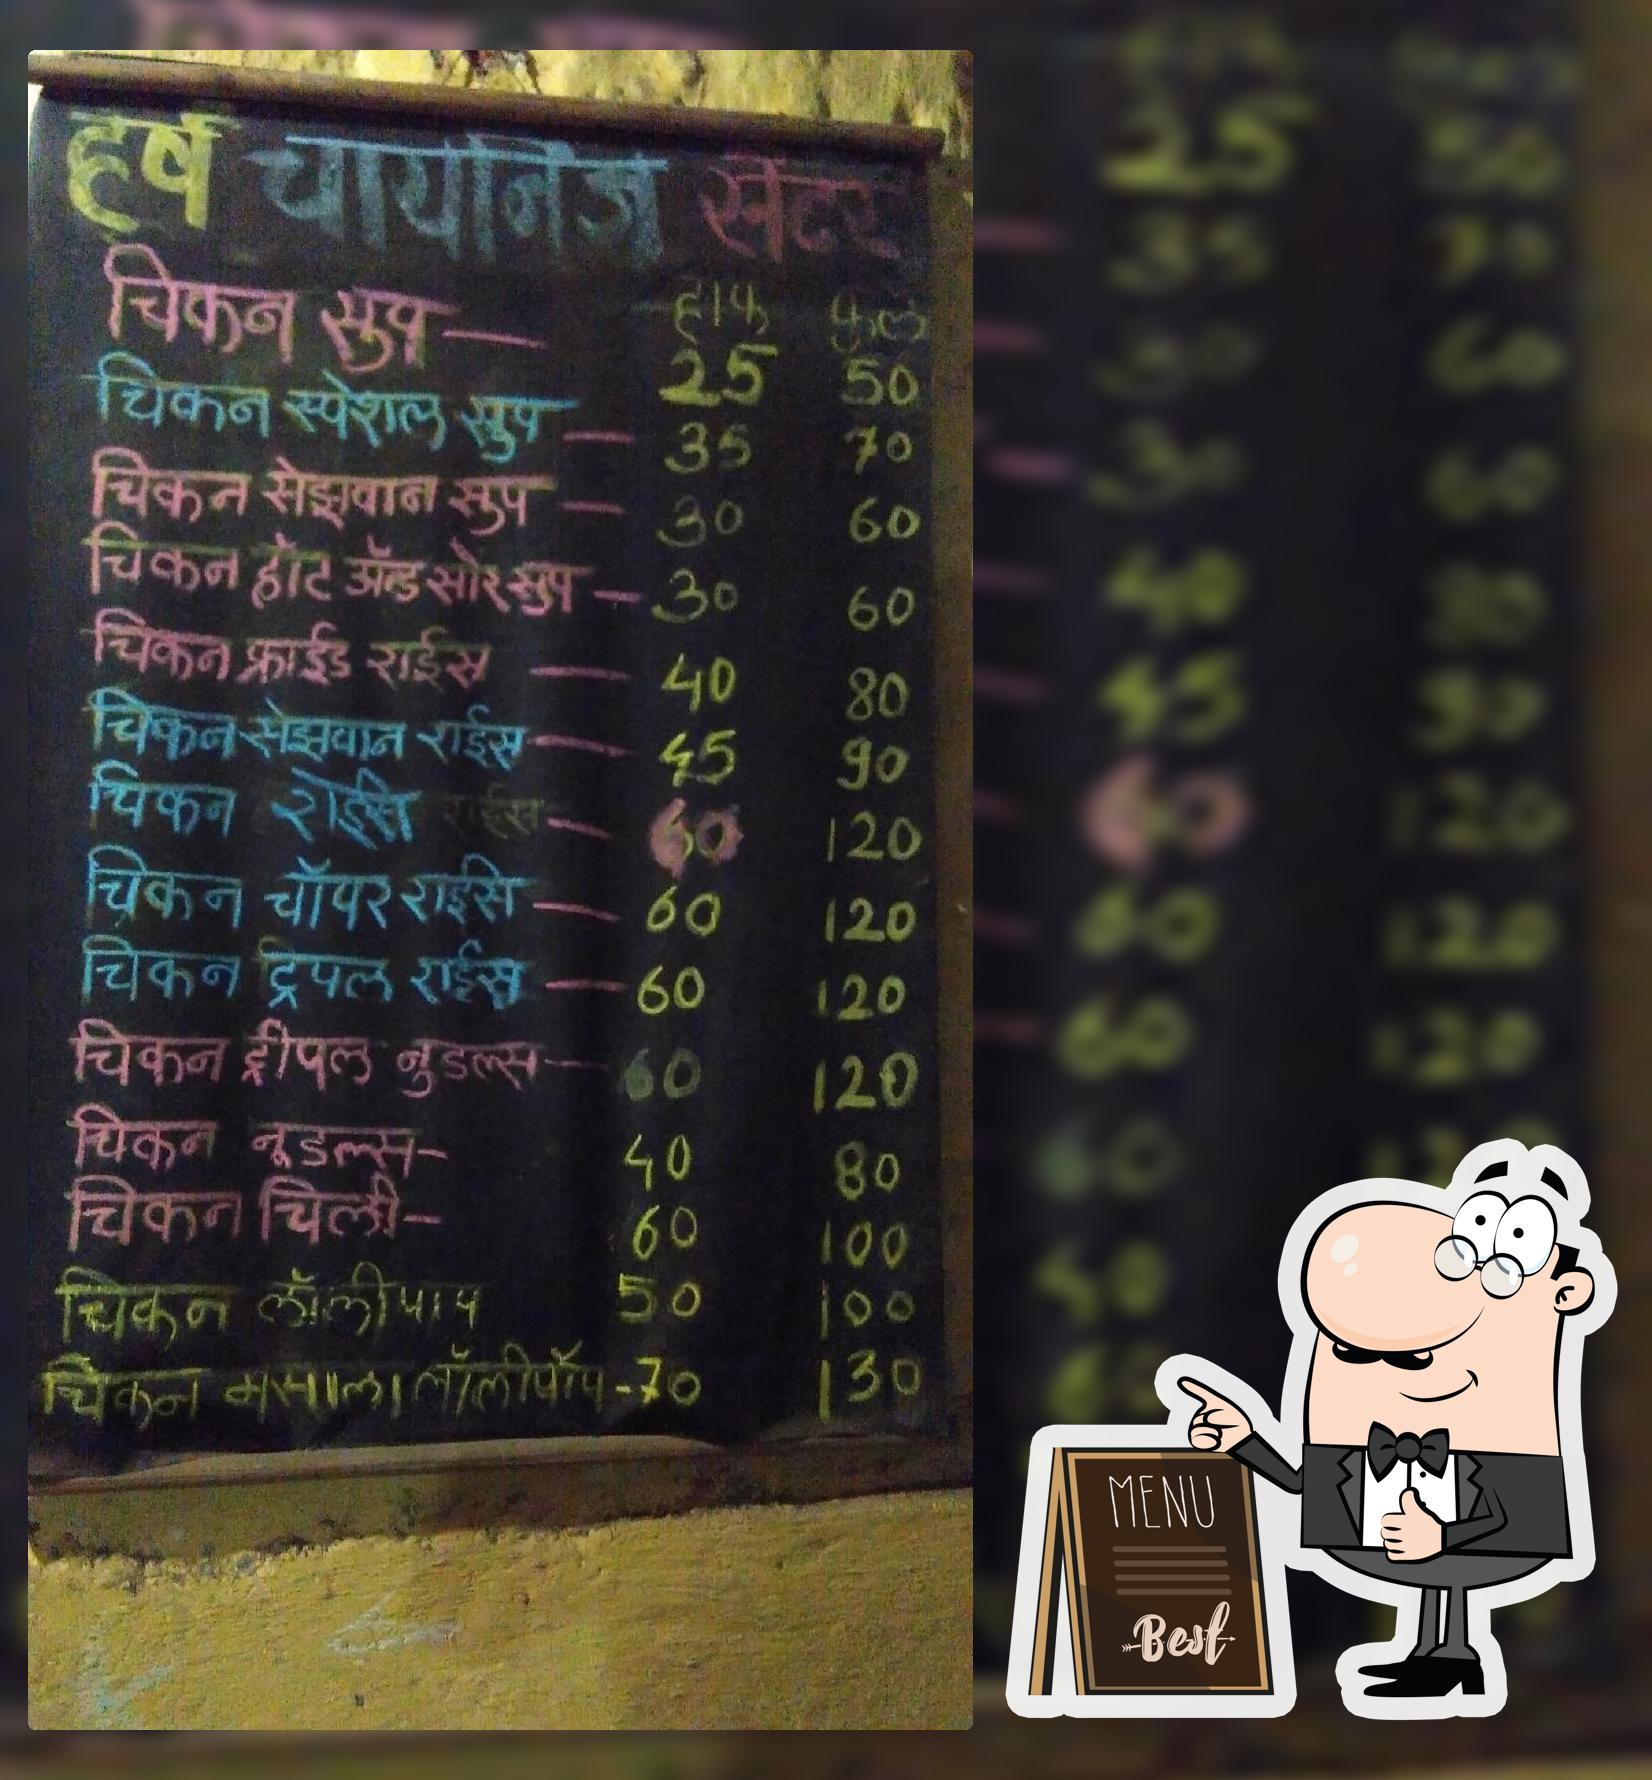 हर्ष चायनिज सेंटर
हाफ फुल
चिकन सुप — 25 50
चिकन स्पेशल सुप — 35 70
चिकन सेझवान सुप — 30 60
चिकन हॉट ॲन्ड सोर सुप — 30 60
चिकन फ्राईड राईस — 40 80
चिकन सेझवान राईस — 45 90
चिकन राईस — 60 120
चिकन चॉपर राईस — 60 120
चिकन ट्रिपल राईस — 60 120
चिकन ट्रीपल नुडल्स — 60 120
चिकन नूडल्स - 40 80
चिकन चिली - 60 100
चिकन लॉलीपाप 50 100
चिकन मसाला लॉलीपॉप - 70 130
MENU
Best